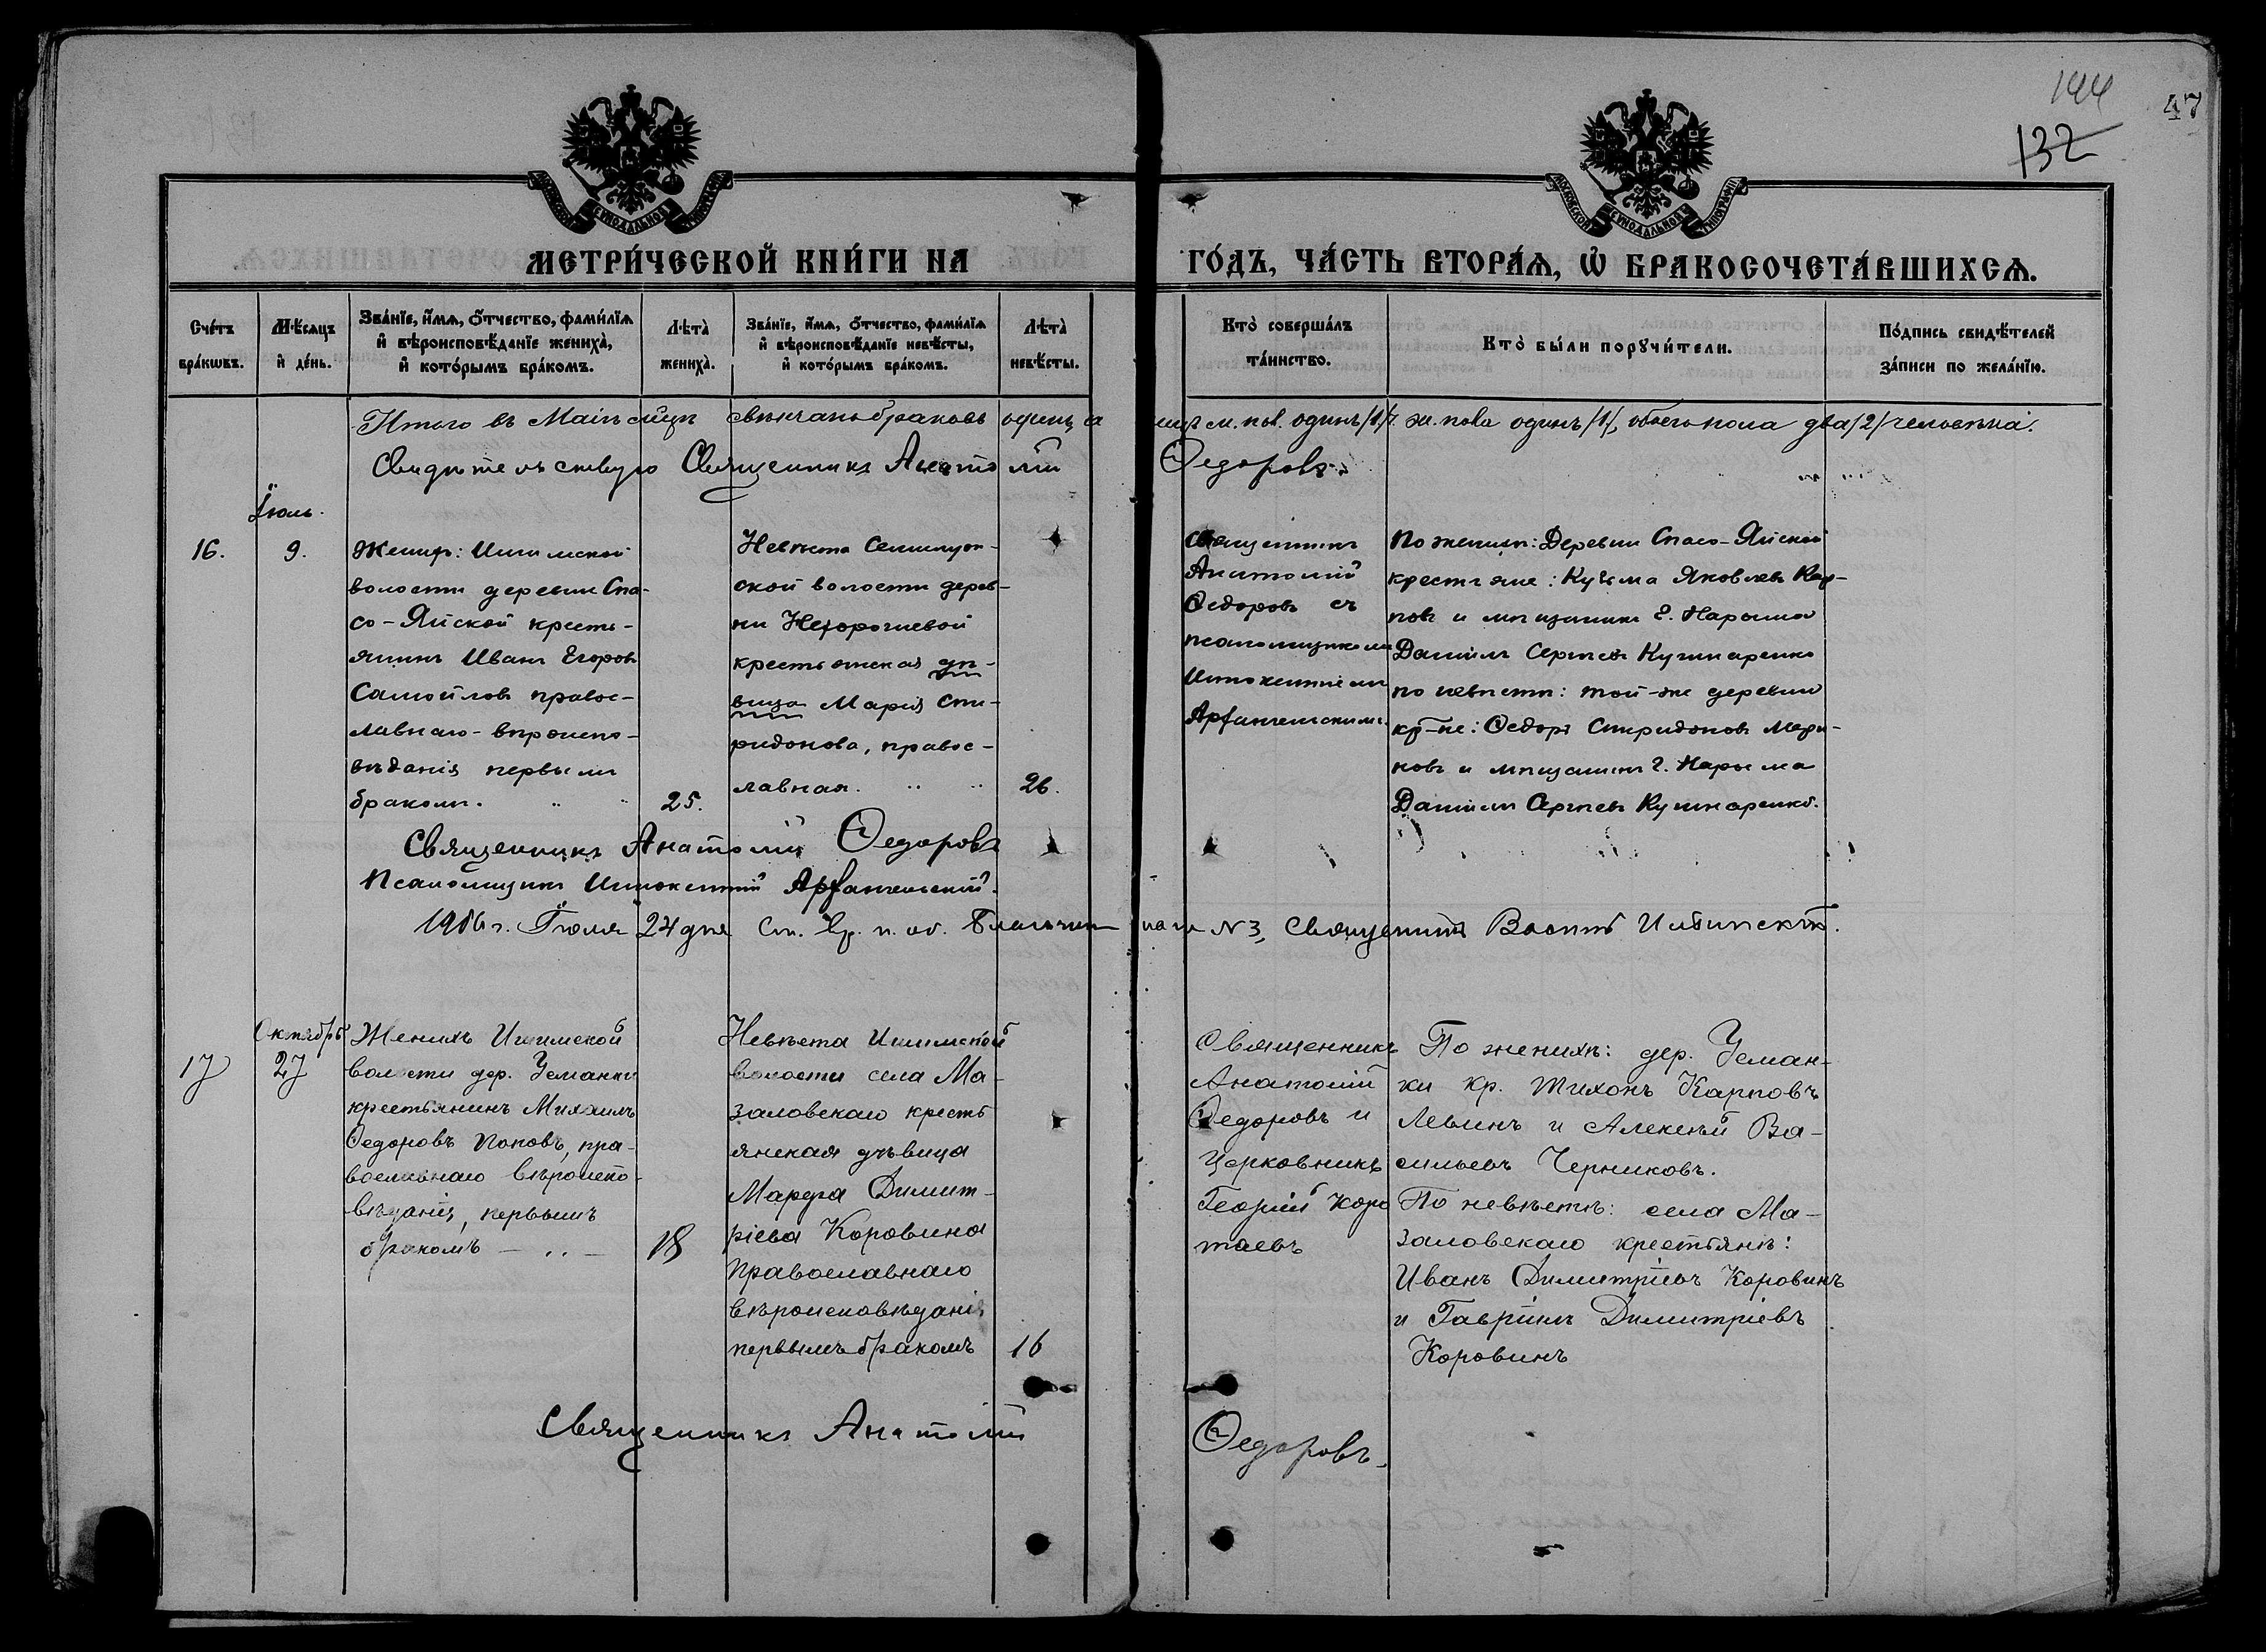 144
132
47
МОСКОВСКОЙ СѴНОДАЛЬНОЙ ТИПОГРАФІИ
МОСКОВСКОЙ СѴНОДАЛЬНОЙ ТИПОГРАФІИ
МЕТРИ́ЧЕСКОЙ КНИ́ГИ НА ГО́ДЪ, ЧА́СТЬ ВТОРА́Ѧ, Ѡ БРАКОСОЧЕТА́ВШИХСѦ.
Сче́тъ
бра́кωвъ.
Мѣ́сяцъ
и҆ де́нь.
Зва́нїе, и҆́мѧ, ѻ҆́тчество, фами́лїѧ
и҆ вѣроисповѣ́данїе жениха̀,
и҆ кото́рымъ бра́комъ.
Лѣта̀
жениха̀.
Зва́нїе, и҆́мѧ, ѻ҆́тчество, фами́лїѧ
и҆ вѣроисповѣ́данїе невѣ́сты,
и҆ кото́рымъ бра́комъ.
Лѣта̀
невѣ́сты.
Кто̀ соверша́лъ
та́инство.
Кто̀ бы́ли порꙋчи́тели.
По́дпись свидѣ́телей
за́писи по жела́нїю.
Итого въ Маѣ вѣнчано браковъ одинъ, м. пол. одинъ /1/, ж. пола одинъ /1/, обоего пола два /2/ человѣка.
Свидѣтельствую Священникъ Анатолій Ѳедоровъ.
Іюль.
16.
9.
Женихъ: Ишимской
волости деревни Спа-
со-Яйской кресть-
янинъ Иванъ Егоровъ
Самойловъ правос-
лавнаго-вѣроиспо-
вѣданія первымъ
бракомъ.
25.
Невѣста
ской волости дерев-
ни Нехорошевой
крестьянская дѣ-
вица Марія Спи-
ридонова, правос-
лавная.
26.
Священникъ
Анатолій
Ѳедоровъ съ
псаломщикомъ
Иннокентіемъ
Архангельскимъ.
По женихѣ: Деревни Спасо-Яйской
крестьяне: Кузьма Яковлевъ Кар-
повъ и мѣщанинъ г. Нарыма
Даніилъ Сергѣевъ Кушнаренко
по невѣстѣ: той-же деревни
кр-не: Ѳедоръ Спиридоновъ Мари-
новъ и мѣщанинъ г. Нарыма
Даніилъ Сергѣевъ Кушнаренко.
Священникъ Анатолій Ѳедоровъ
Псаломщикъ Иннокентій Архангельскій.
1906 г. Іюля 24 дня № 3, Священникъ
17
Октябрь
27
Женихъ Ишимской
волости дер. Усманки
крестьянинъ Михаилъ
Ѳедоровъ Поповъ, пра-
вославнаго вѣроиспо-
вѣданія, первымъ
бракомъ
18
Невѣста Ишимской
волости села Ма-
заловскаго кресть
янская дѣвица
Марѳа Димит-
ріева Коровина
православнаго
вѣроисповѣданія
первымъ бракомъ
16
Священникъ
Анатолій
Ѳедоровъ и
Церковникъ
Георгій Коро
таевъ
По женихѣ: дер. Усман-
ки кр. Тихонъ Карповъ
Левинъ и Алексѣй Ва-
сильевъ Черниковъ.
По невѣстѣ: села Ма-
заловскаго крестьяне:
Иванъ Димитріевъ Коровинъ
и Гавріилъ Димитріевъ
Коровинъ
Священникъ Анатолій Ѳедоровъ.